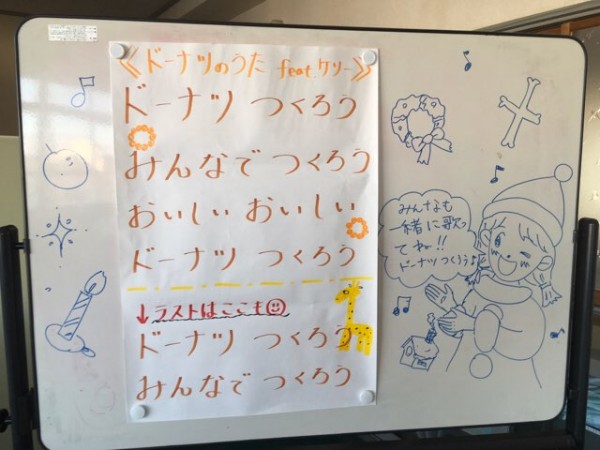 《ドーナツのうた feat.ケソー》
ドーナツ つくろう
みんなで つくろう
おいしい おいしい
ドーナツ つくろう
↓ラストはここも
ドーナツ つくろう
みんなで つくろう
みんなも
一緒に歌っ
てね!!
ドーナツつくろう♪